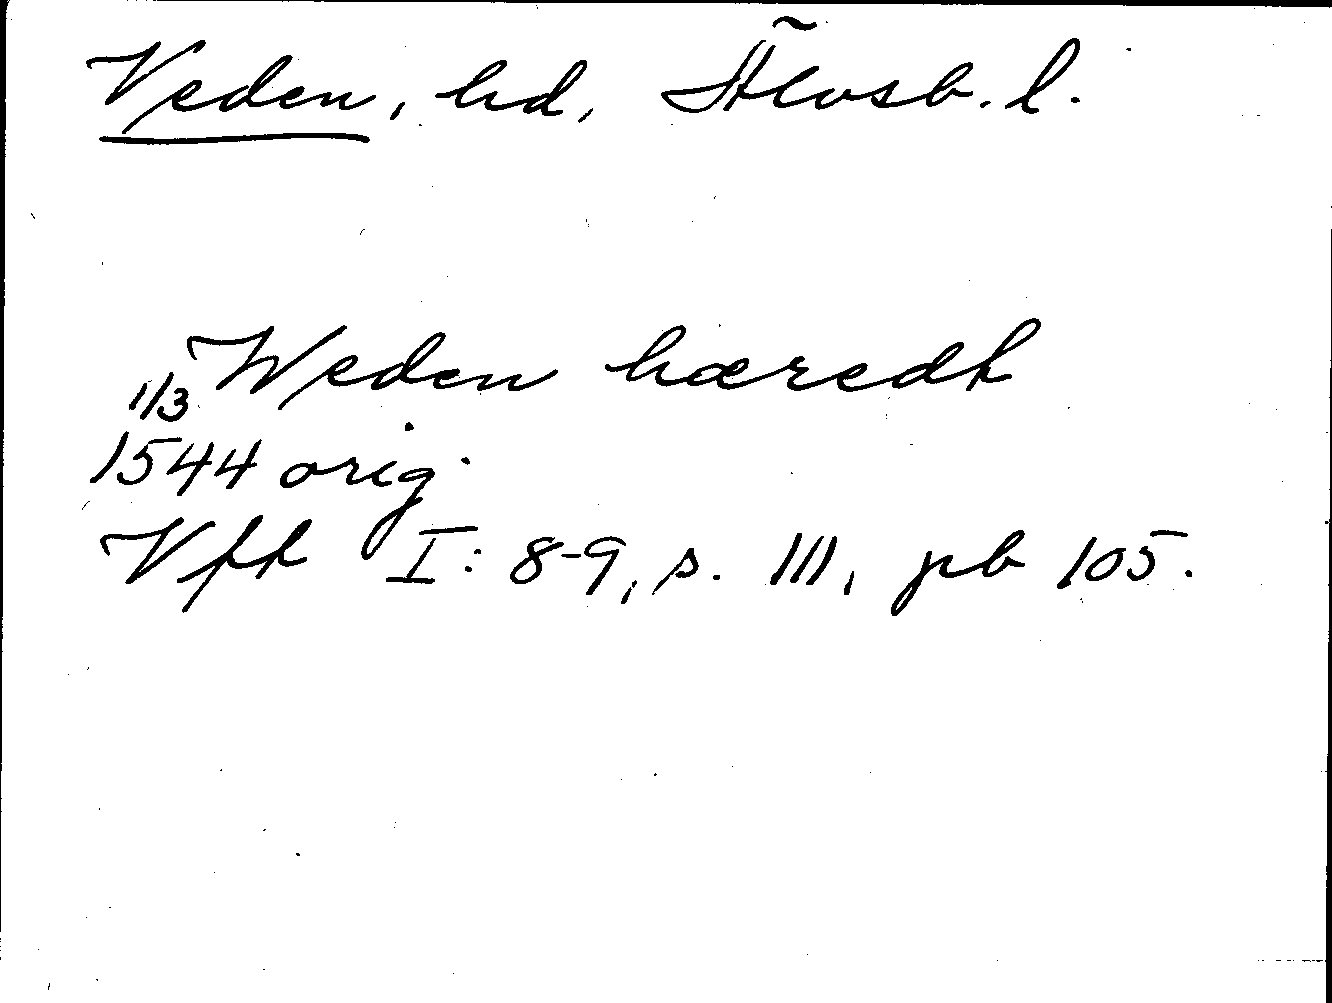 Veden, hd, Älvsb. l.
Weden hæredh
1/3
1544 orig.
Vfh I: 8-9, s. 111, pb 105.